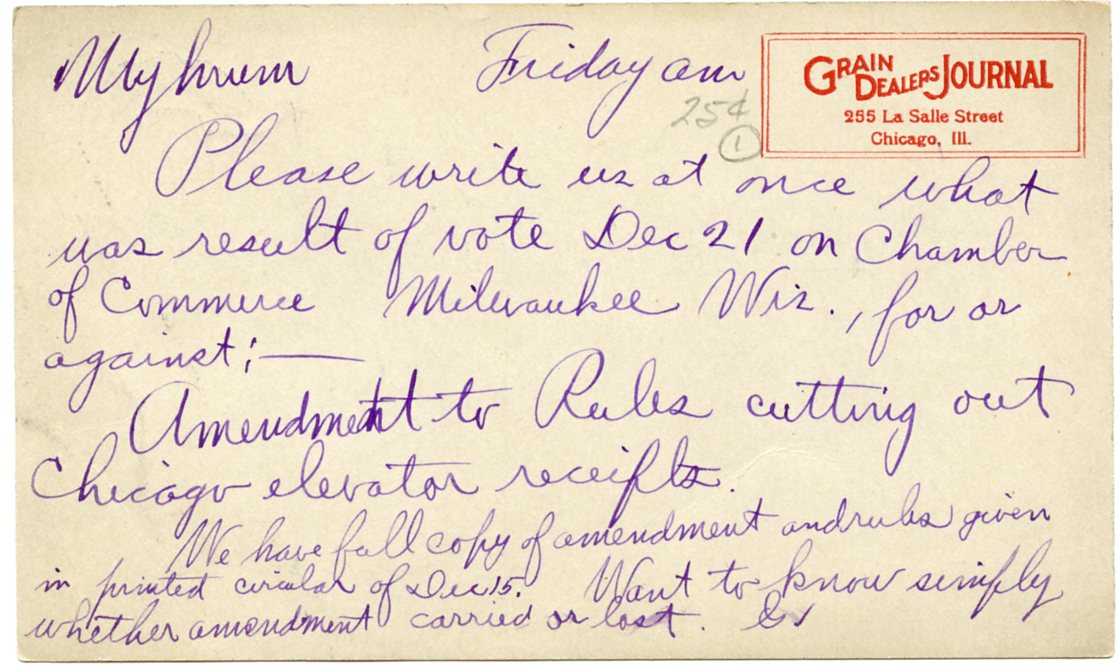 Myhrum Friday am
GRAIN DEALERS JOURNAL
255 La Salle Street
Chicago, Ill.
25¢
1
Please write us at once what
was result of vote Dec 21 on Chamber
of Commerce Milwaukee Wis., for or
against: —
Amendment to Rules cutting out
Chicago elevator receipts.
We have full copy of amendment and rules given
in printed circular of Dec 15. Want to know simply
whether amendment carried or lost.